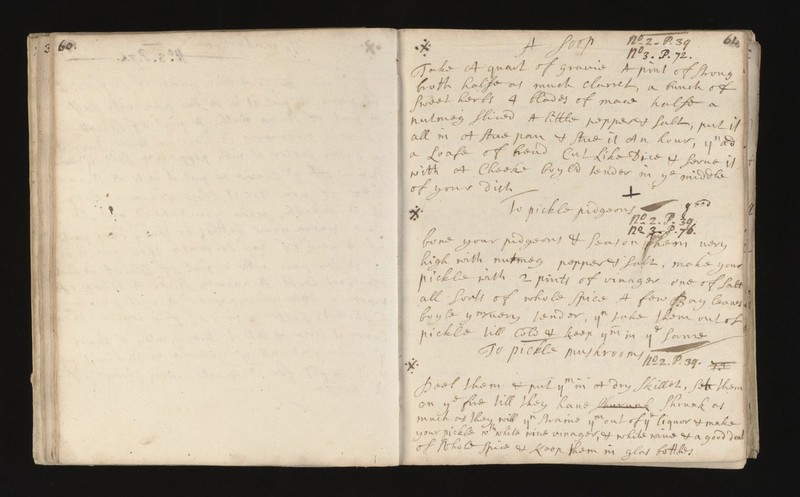 60
3
A Soop
No 2. P. 39
61
No 3. P. 72.
Take A quart of gravie A pint of strong
broth halfe as much claret, a bunch of
sweet herbs 4 blades of mace halfe a
nutmeg sliced A little pepper & salt, put it
all in A stue pan & stue it An hour, yn ad
a Loafe of bread Cut Like Dice & serve it
with A Cheeke boyld tender in ye middle
of your dish
To pickle pidgeons
good
No 2. P. 39.
No 3. P. 76.
bone your pidgeons & season them very
high with nutmeg pepper & salt, make your
pickle with 2 pints of vinager one of salt
all sorts of whole spice A few Bay leaves
boyle ym very tender, yn take them out of
pickle till Cold & keep ym in ye same
To pickle mushrooms
No 2. P. 39.
Peel them & put ym in A dry skillet, set them
on ye fire till they have shrunk shrunk as
much as they will yn straine ym out of ye liquor & make
your pickle wth white wine vinager, & white wine & a good deal
of whole spice & keep them in glas bottles